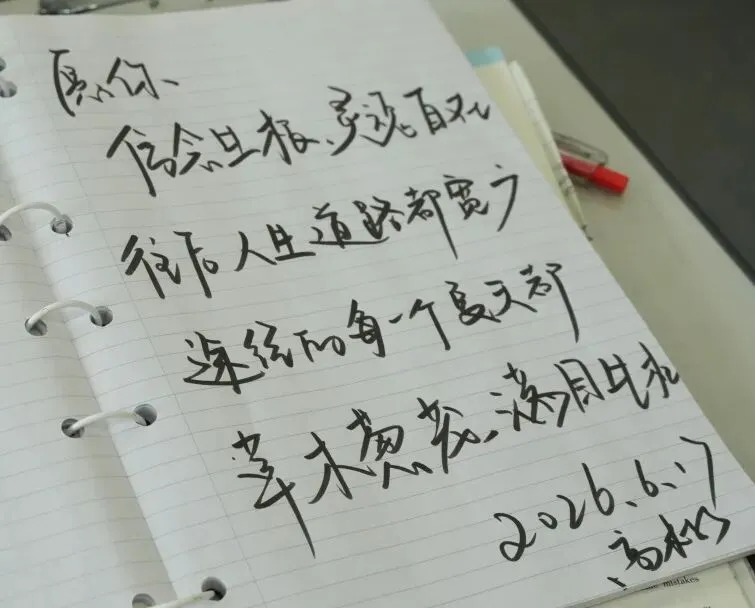 愿你、
信念生根、灵魂自在
往后人生道路都宽广
途经的每一个夏天都
草木葱茏、满目生机
2026.6.17
高松
mistakes